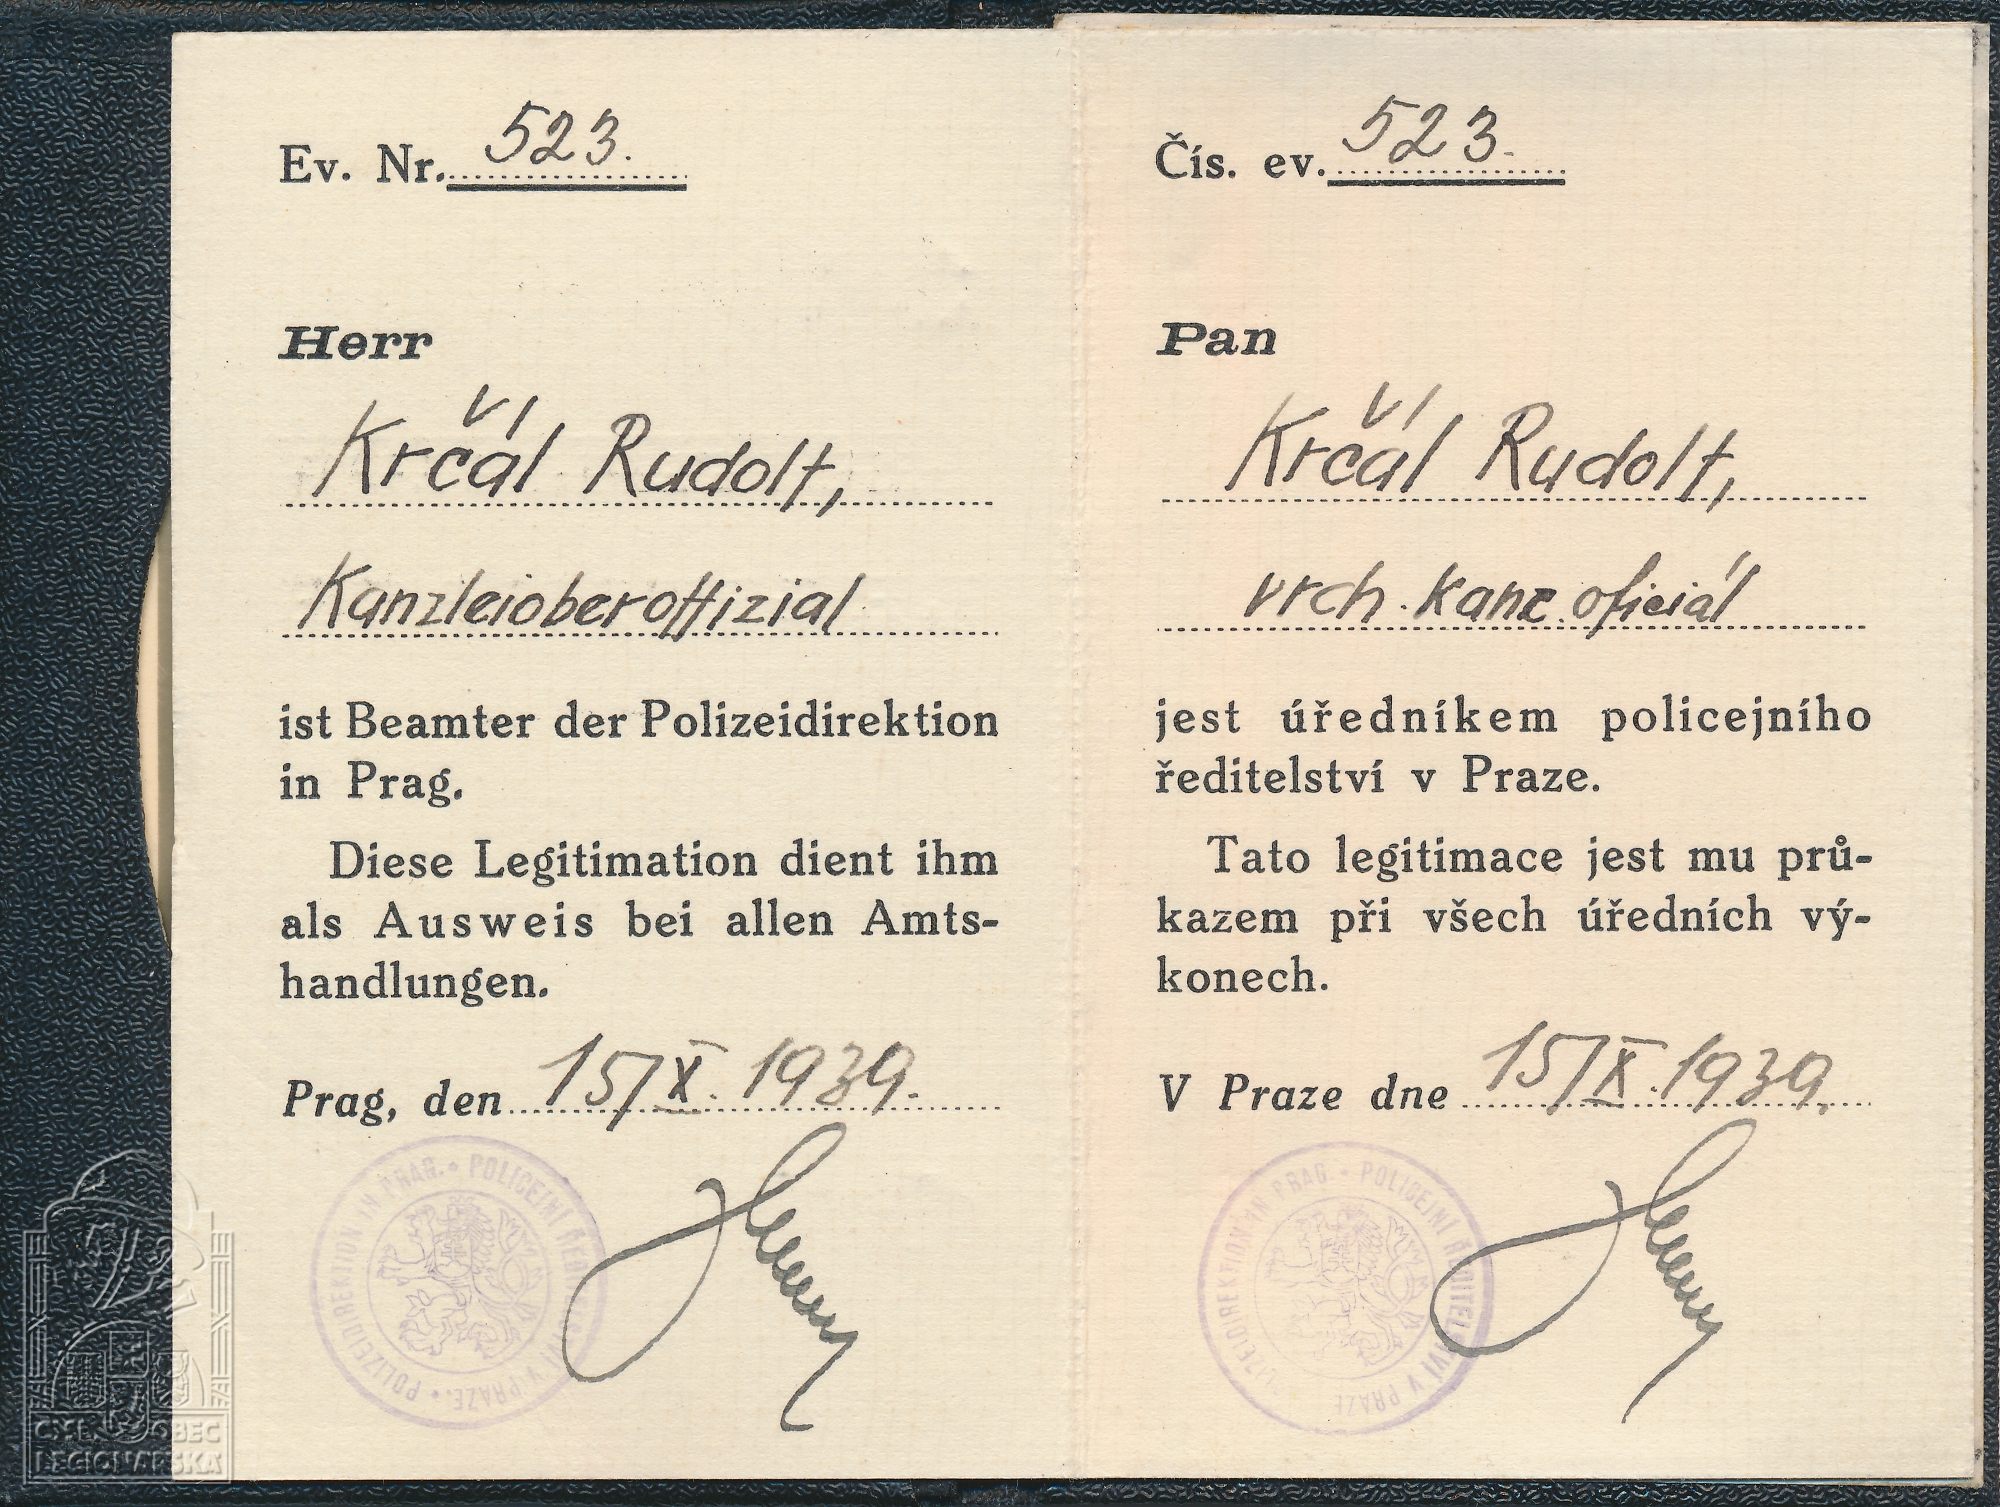 Ev. Nr. 523.
Herr
Krčál Rudolf,
Kanzleioberoffizial
ist Beamter der Polizeidirektion
in Prag.
Diese Legitimation dient ihm
als Ausweis bei allen Amts-
handlungen.
Prag, den 15/X. 1939.
POLIZEIDIREKTION IN PRAG. • POLICEJNÍ ŘEDITELSTVÍ V PRAZE. •
Čís. ev. 523.
Pan
Krčál Rudolf,
vrch. kanc. oficiál
jest úředníkem policejního
ředitelství v Praze.
Tato legitimace jest mu prů-
kazem při všech úředních vý-
konech.
V Praze dne 15/X. 1939.
POLIZEIDIREKTION IN PRAG. • POLICEJNÍ ŘEDITELSTVÍ V PRAZE
ČS. OBEC
LEGIONÁŘSKÁ